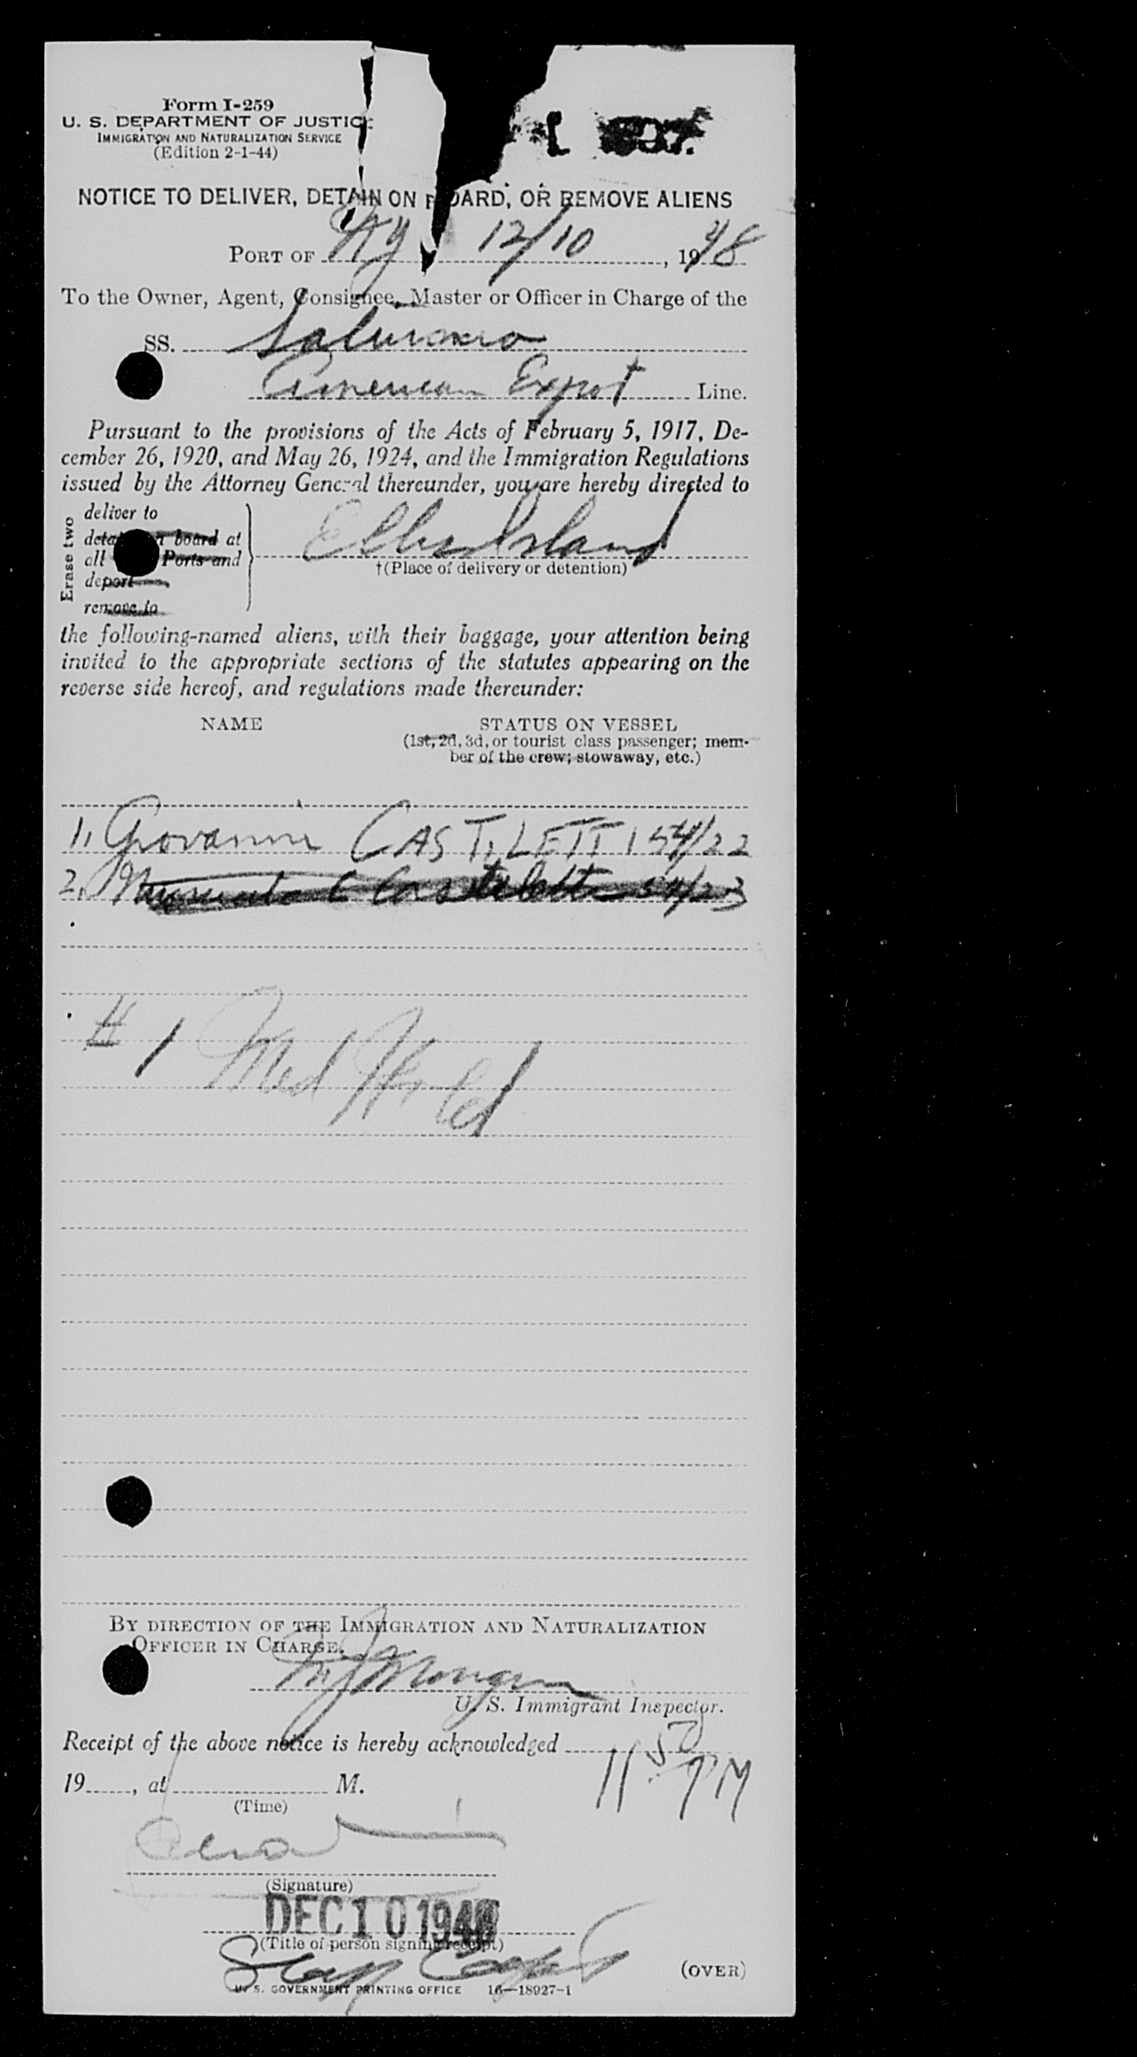 Form I-259
U. S. DEPARTMENT OF JUSTICE
IMMIGRATION AND NATURALIZATION SERVICE
(Edition 2-1-44)
NOTICE TO DELIVER, DETAIN ON BOARD, OR REMOVE ALIENS
PORT OF NY 12/10, 1948
To the Owner, Agent, Consignee, Master or Officer in Charge of the
SS.
American Export Line.
Pursuant to the provisions of the Acts of February 5, 1917, De-
cember 26, 1920, and May 26, 1924, and the Immigration Regulations
issued by the Attorney General thereunder, you are hereby directed to
Erase two
deliver to
detain on board at
all Ports and
deport
remove to
Ellis Island
†(Place of delivery or detention)
the following-named aliens, with their baggage, your attention being
invited to the appropriate sections of the statutes appearing on the
reverse side hereof, and regulations made thereunder:
NAME STATUS ON VESSEL
(1st, 2d, 3d, or tourist class passenger; mem-
ber of the crew; stowaway, etc.)
1. Giovanni CASTILETTI 54/22
2. 54/23
# 1 Med Hold
BY DIRECTION OF THE IMMIGRATION AND NATURALIZATION
OFFICER IN CHARGE.
U. S. Immigrant Inspector.
Receipt of the above notice is hereby acknowledged
19 , at M. 11 50 PM
(Time)
(Signature)
DEC 10 1948
(Title of person signing receipt)
(OVER)
U. S. GOVERNMENT PRINTING OFFICE 16—18927-1